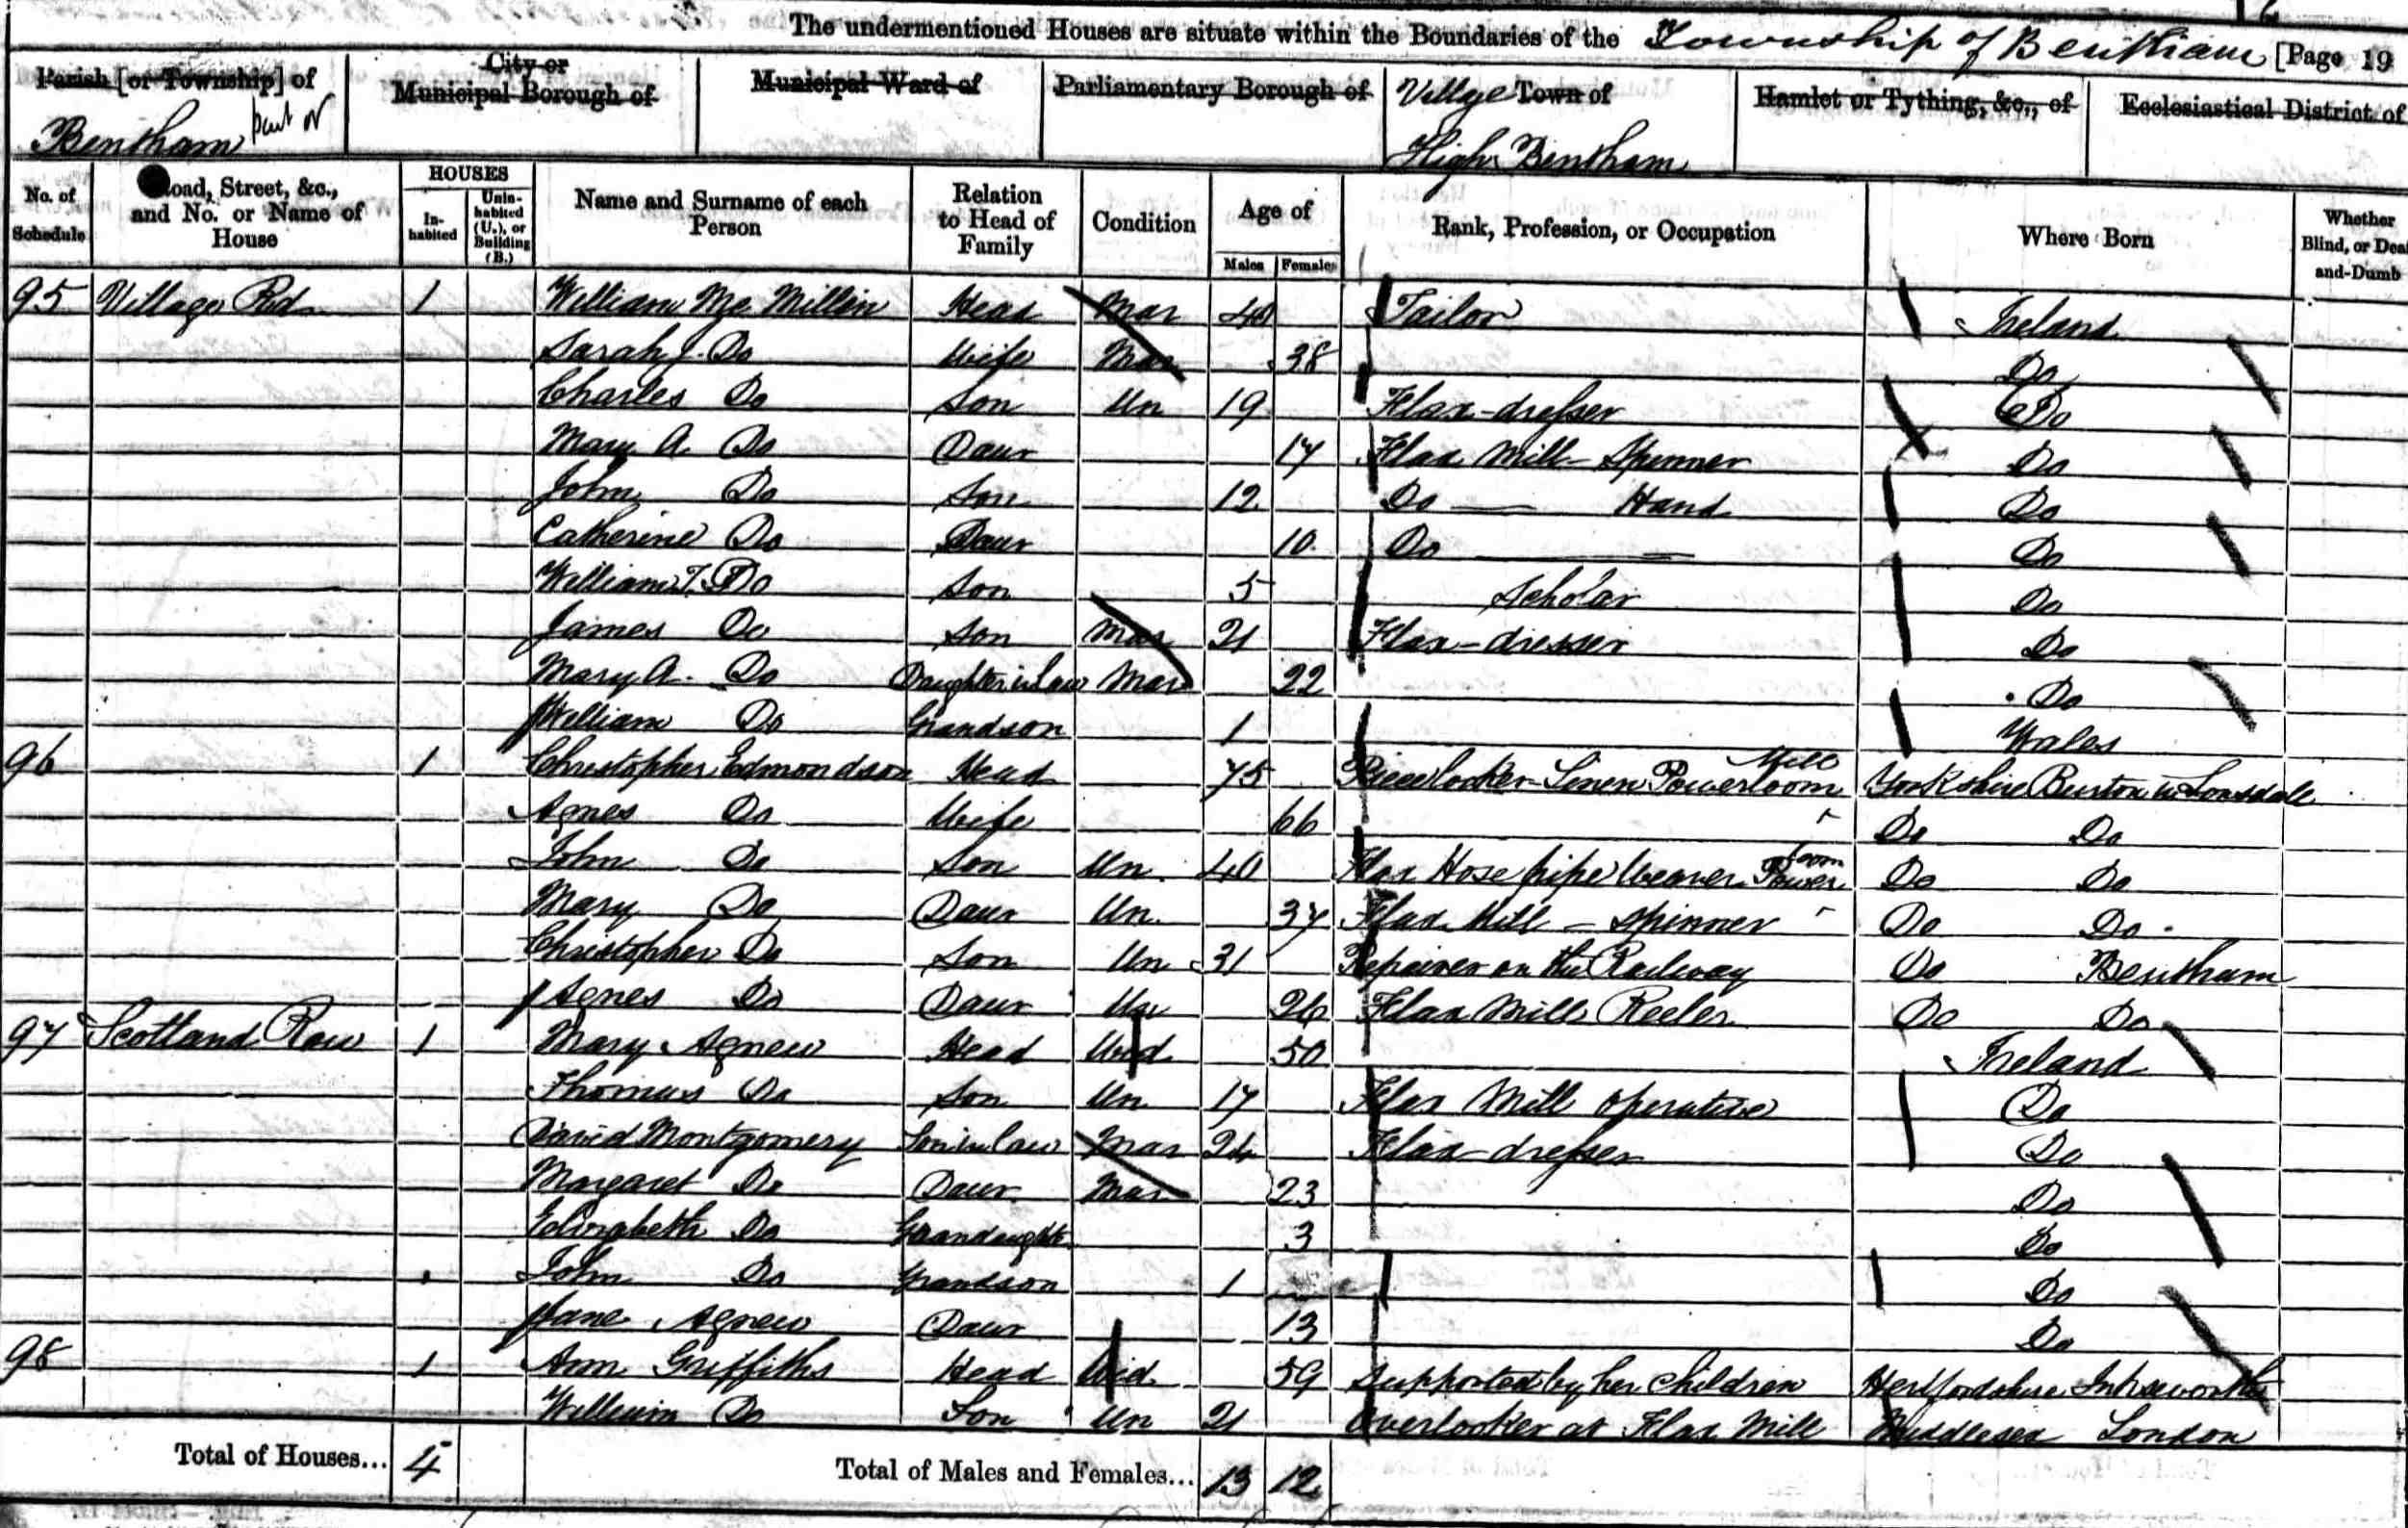 The undermentioned Houses are situate within the Boundaries of the Township of Bentham [Page 19
Parish [or Township] of City or Municipal Borough of Municipal Ward of Parliamentary Borough of Village Town of Hamlet or Tything, &c., of Ecclesiastical District of
Bentham part of High Bentham
No. of Schedule Road, Street, &c., and No. or Name of House HOUSES In-habited Unin-habited (U.), or Building (B.) Name and Surname of each Person Relation to Head of Family Condition Age of Males Females Rank, Profession, or Occupation Where Born Whether Blind, or Deaf-and-Dumb
95 Village Rd 1 William Mc Millin Head Mar 40 Tailor Ireland
Sarah J. Do Wife Mar 38 Do
Charles Do Son Un 19 Flax-dresser Do
Mary A. Do Daur 17 Flax Mill - Spinner Do
John Do Son 12 Do — Hand Do
Catherine Do Daur 10 Do — Do
William T. Do Son 5 Scholar Do
James Do Son Mar 21 Flax-dresser Do
Mary A. Do Daughter in Law Mar 22 Do
William Do Grandson 1 Wales
96 1 Christopher Edmondson Head 75 Piecelooker Linen Powerloom Mill Yorkshire Burton in Lonsdale
Agnes Do Wife 66 Do Do
John Do Son Un 40 Flax Hose pipe Weaver Power loom Do Do
Mary Do Daur Un 37 Flax Mill - Spinner Do Do
Christopher Do Son Un 31 Repairer on the Railway Do Bentham
Agnes Do Daur Un 26 Flax Mill Reeler Do Do
97 Scotland Row 1 Mary Agnew Head Wid 50 Ireland
Thomas Do Son Un 17 Flax Mill operative Do
David Montgomery Son in law Mar 24 Flax-dresser Do
Margaret Do Daur Mar 23 Do
Elizabeth Do Grandaughter 3 Do
John Do Grandson 1 Do
Jane Agnew Daur 13 Do
98 1 Ann Griffiths Head Wid 59 Supported by her children Hertfordshire
William Do Son Un 21 Overlooker at Flax Mill Middlesex London
Total of Houses... 4 Total of Males and Females... 13 12